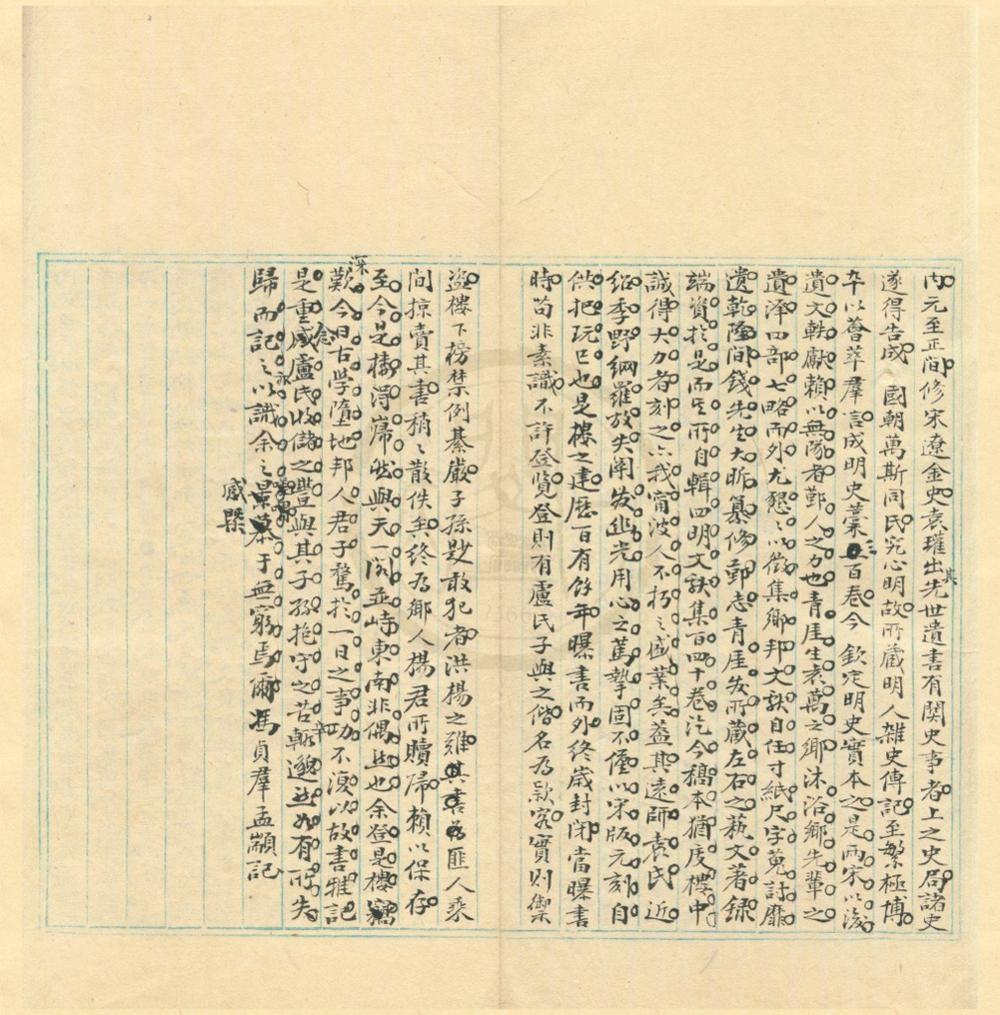 內元至正間修宋遼金史袁瓘出其先世遺書有関史事者上之史局諸史
遂得告成 國朝萬斯同氏究心明故所藏明人雜史傳記至繁極博
卒以薈萃羣言成明史藁三百卷今 欽定明史實本之是兩宋以後
遺文軼獻賴以無隊者鄞人之力也青厓生袁萬之鄉沐浴鄉先輩之
遺澤四部七略而外尤懇〻以徵集鄉邦文獻自任寸紙尺字蒐討靡
遺乾隆間錢先生大昕纂修鄞志青厓發所藏左右之藝文著錄
端資於是而其所自輯四明文獻集百四十卷迄今槁本猶庋樓中
誠得大力者刻之亦我甯波人不朽之盛業矣蓋其遠師袁氏近
紹季野網羅放失闡發幽光用心之篤摯固不僅以宋版元刻自
供把玩已也是樓之建歷百有餘年曝書而外終歲封閉當曝書
時苟非素識不許登覽登則有盧氏子與之偕名為款客實則禦
盜樓下榜禁例綦嚴子孫尟敢犯者洪楊之難匪人乘
間掠賣其書稍〻散佚矣終為鄉人楊君所贖歸賴以保存
至今是樓得巋然與天一閣並峙東南非偶然也余登是樓竊
深歎今日古學墮地邦人君子騖於一日之事功不復以故書雅記
是重念盧氏儲之豐與其子孫抱守之苦輒邈然如有所失
歸而記之以識余之感槩于無窮焉爾馮貞羣孟顓記